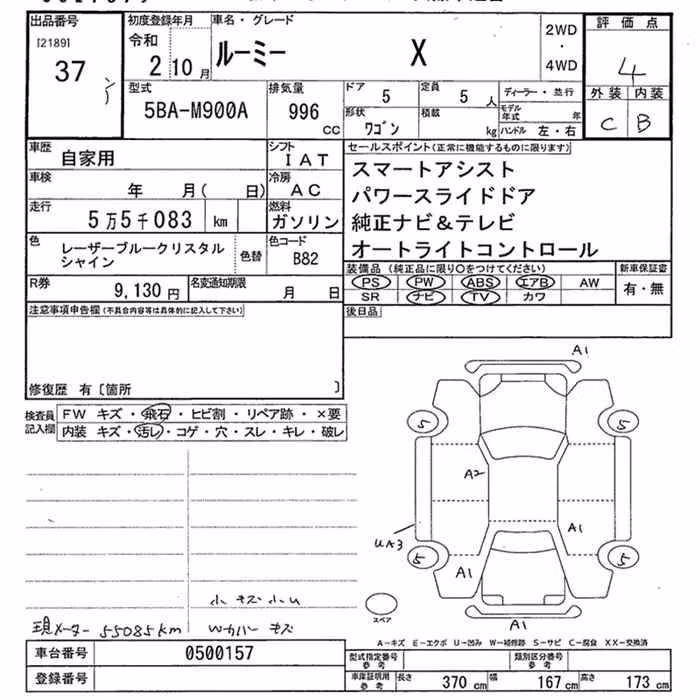 出品番号 初度登録年月 車名・グレード 2WD・4WD 評価点
[2189] 37 令和 2 10月 ルーミー X 4
外装 内装
C B
型式 5BA-M900A 排気量 996 CC ドア 5 定員 5 人 ディーラー・並行
形状 ワゴン 積載 kg モデル年式 年 ハンドル 左・右
車歴 自家用 シフト IAT セールスポイント(正常に機能するものに限ります)
車検 年 月( 日) 冷房 AC スマートアシスト
パワースライドドア
走行 5万5千083 km 燃料 ガソリン 純正ナビ&テレビ
色 レーザーブルークリスタルシャイン 色替 色コード B82 オートライトコントロール
装備品(純正品に限り○をつけてください) 新車保証書
R券 9,130円 名変通知期限 月 日 PS PW ABS エアB AW 有・無
SR ナビ TV カワ
注意事項申告欄(不具合内容等は具体的に記入して下さい) 後日品
修復歴 有〔箇所 〕
検査員記入欄 FW キズ・飛石・ヒビ割・リペア跡・×要
内装 キズ・汚レ・コゲ・穴・スレ・キレ・破レ
A1
5 5
A2
A1
UA3
5 5
A1
スペア
A1
小キズ小U
現メーター 55085km Wカバーキズ
A-キズ E-エクボ U-凹み W-補修跡 S-サビ C-腐食 XX-交換済
車台番号 0500157 型式指定番号 参考 類別区分番号 参考
登録番号 車庫証明用 参考 長さ 370 cm 幅 167 cm 高さ 173 cm